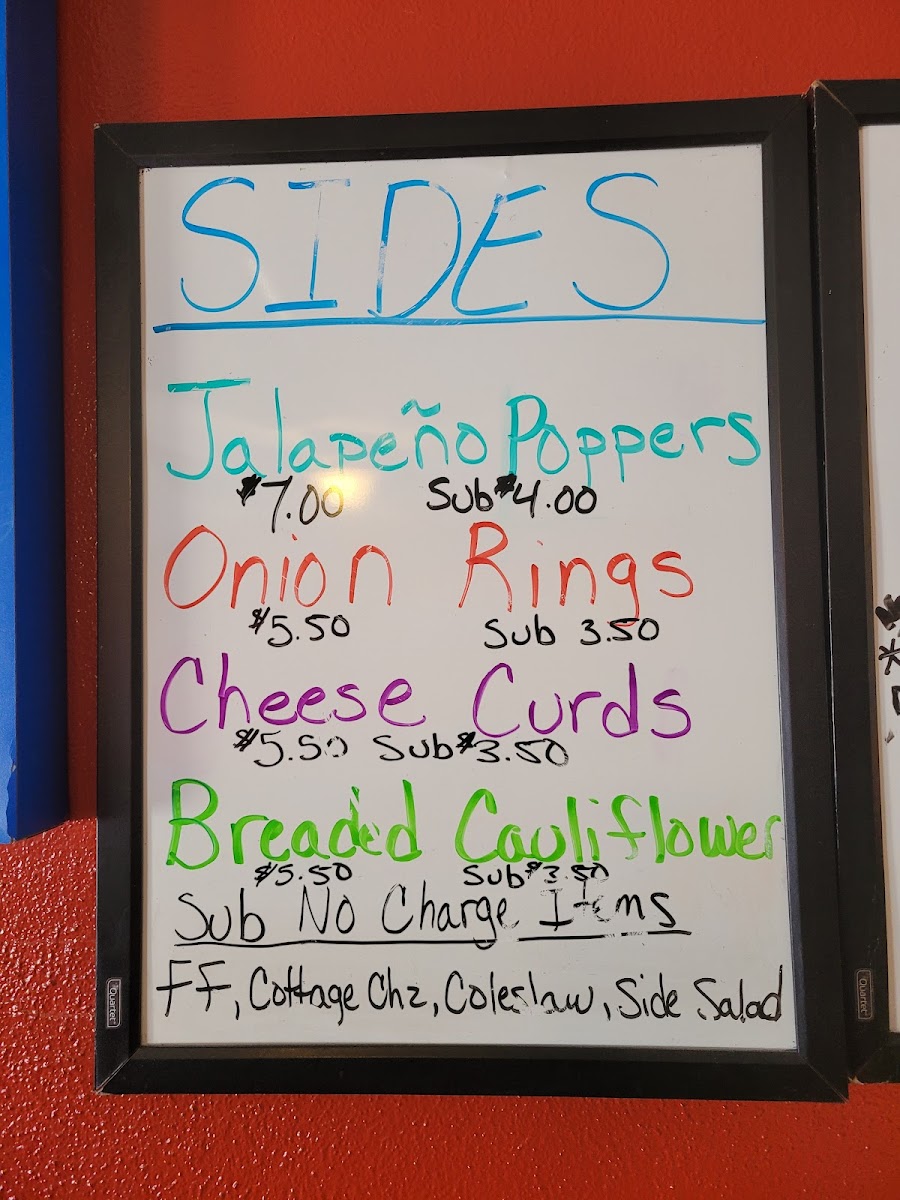 SIDES
Jalapeño Poppers
$7.00 Sub $4.00
Onion Rings
$5.50 Sub 3.50
Cheese Curds
$5.50 Sub $3.50
Breaded Cauliflower
$5.50 Sub $3.50
Sub No Charge Items
FF, Cottage Chz, Coleslaw, Side Salad
Quartet
Quartet